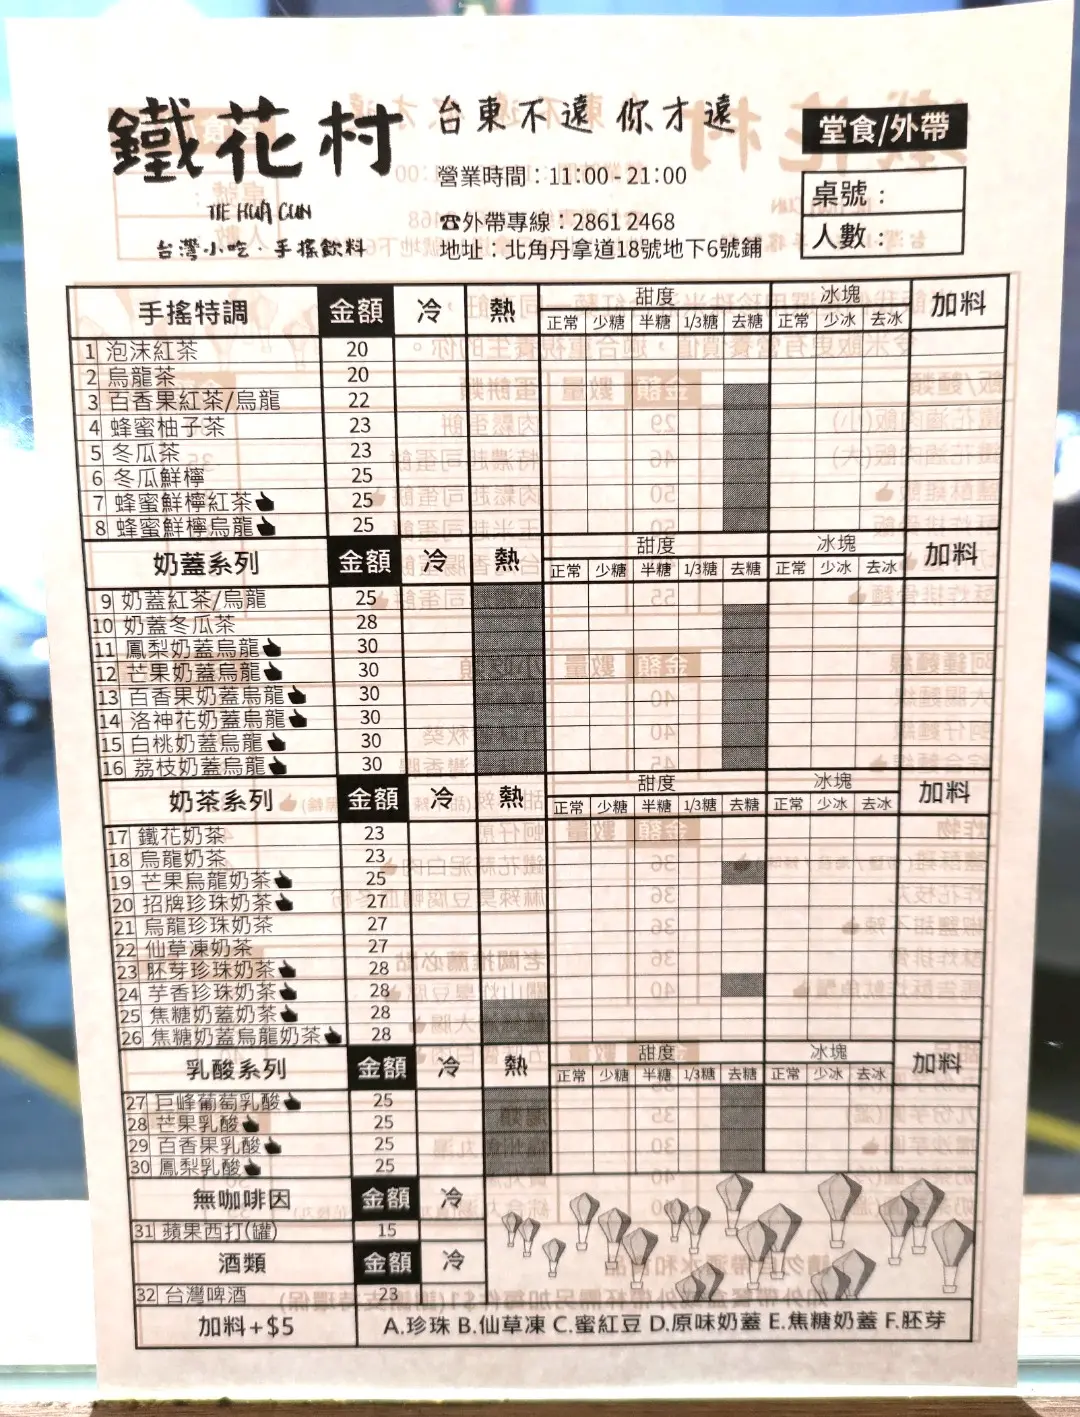 鐵花村
台東不遠 你才遠
堂食/外帶
營業時間：11:00 - 21:00
TIE HUA CUN
☎外帶專線：2861 2468
桌號：
台灣小吃·手搖飲料
地址：北角丹拿道18號地下6號鋪
人數：
手搖特調 金額 冷 熱 甜度 冰塊 加料
正常 少糖 半糖 1/3糖 去糖 正常 少冰 去冰
1 泡沫紅茶 20
2 烏龍茶 20
3 百香果紅茶/烏龍 22
4 蜂蜜柚子茶 23
5 冬瓜茶 23
6 冬瓜鮮檸 25
7 蜂蜜鮮檸紅茶 25
8 蜂蜜鮮檸烏龍 25
奶蓋系列 金額 冷 熱 甜度 冰塊 加料
正常 少糖 半糖 1/3糖 去糖 正常 少冰 去冰
9 奶蓋紅茶/烏龍 25
10 奶蓋冬瓜茶 28
11 鳳梨奶蓋烏龍 30
12 芒果奶蓋烏龍 30
13 百香果奶蓋烏龍 30
14 洛神花奶蓋烏龍 30
15 白桃奶蓋烏龍 30
16 荔枝奶蓋烏龍 30
奶茶系列 金額 冷 熱 甜度 冰塊 加料
正常 少糖 半糖 1/3糖 去糖 正常 少冰 去冰
17 鐵花奶茶 23
18 烏龍奶茶 23
19 芒果烏龍奶茶 25
20 招牌珍珠奶茶 27
21 烏龍珍珠奶茶 27
22 仙草凍奶茶 27
23 胚芽珍珠奶茶 28
24 芋香珍珠奶茶 28
25 焦糖奶蓋奶茶 28
26 焦糖奶蓋烏龍奶茶 28
乳酸系列 金額 冷 熱 甜度 冰塊 加料
正常 少糖 半糖 1/3糖 去糖 正常 少冰 去冰
27 巨峰葡萄乳酸 25
28 芒果乳酸 25
29 百香果乳酸 25
30 鳳梨乳酸 25
無咖啡因 金額 冷
31 蘋果西打(罐) 15
酒類 金額 冷
32 台灣啤酒 23
加料+$5 A.珍珠 B.仙草凍 C.蜜紅豆 D.原味奶蓋 E.焦糖奶蓋 F.胚芽